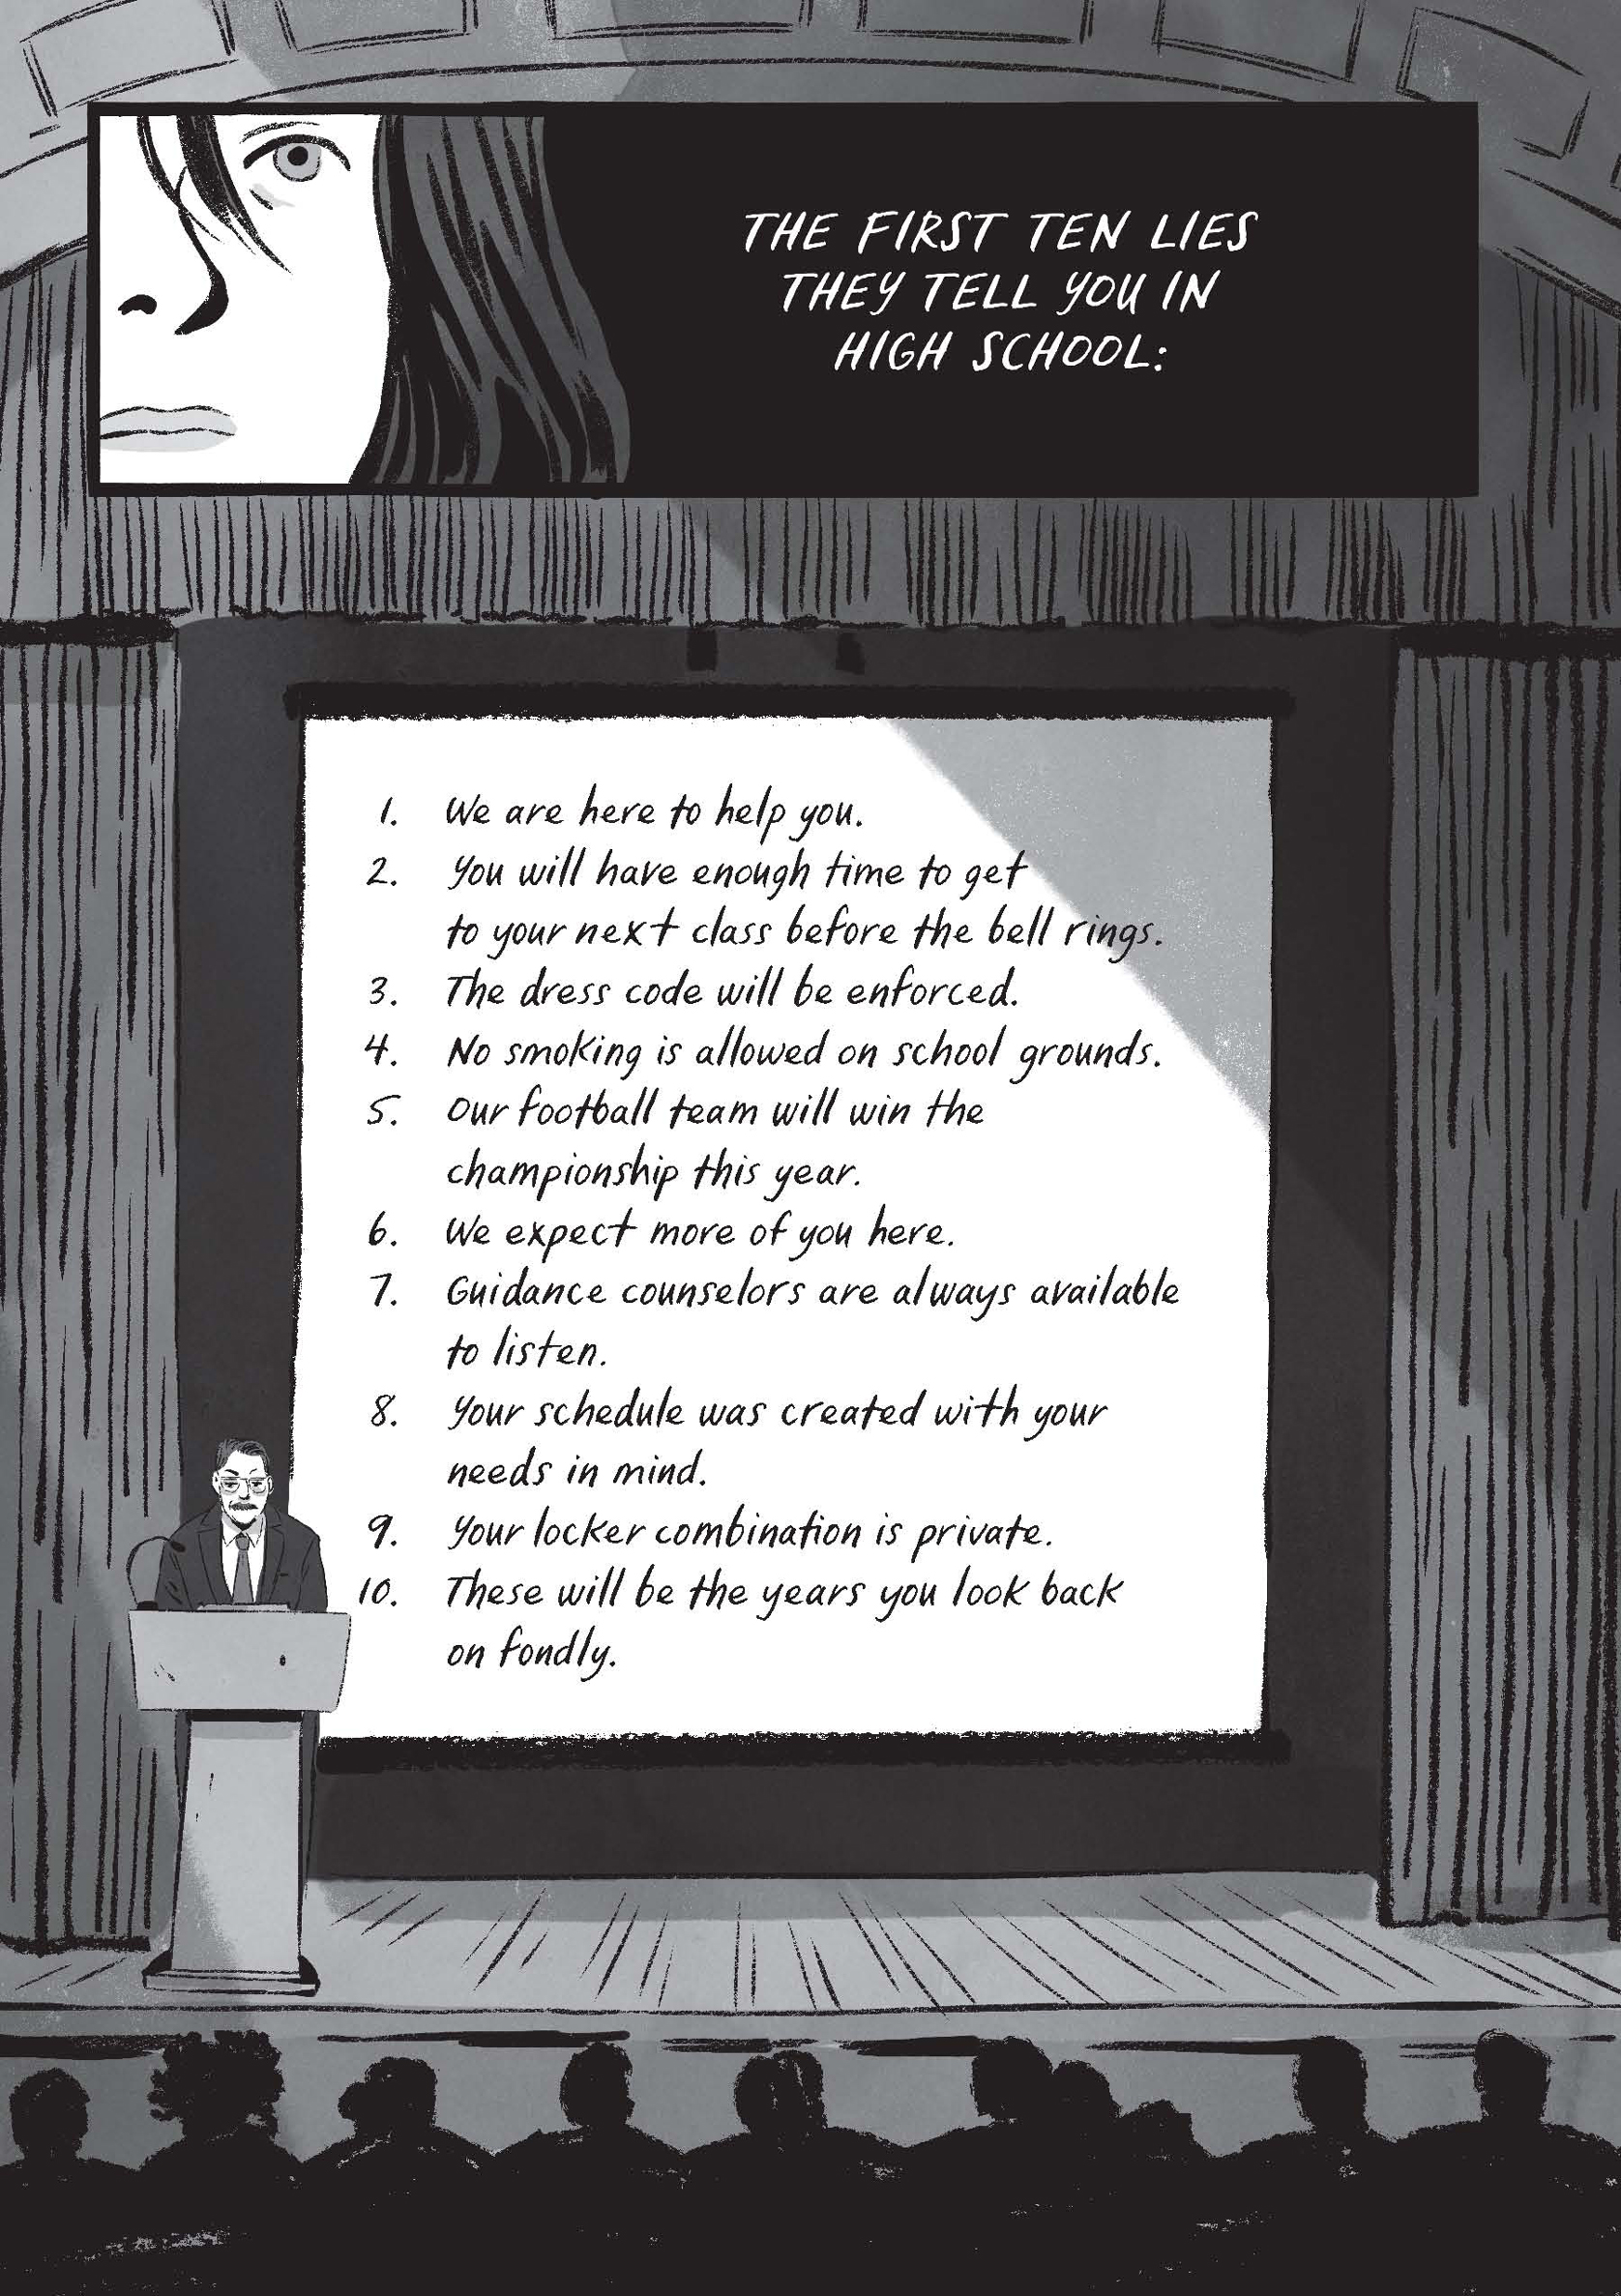 THE FIRST TEN LIES
THEY TELL YOU IN
HIGH SCHOOL:
1. We are here to help you.
2. You will have enough time to get
to your next class before the bell rings.
3. The dress code will be enforced.
4. No smoking is allowed on school grounds.
5. Our football team will win the
championship this year.
6. We expect more of you here.
7. Guidance counselors are always available
to listen.
8. Your schedule was created with your
needs in mind.
9. Your locker combination is private.
10. These will be the years you look back
on fondly.